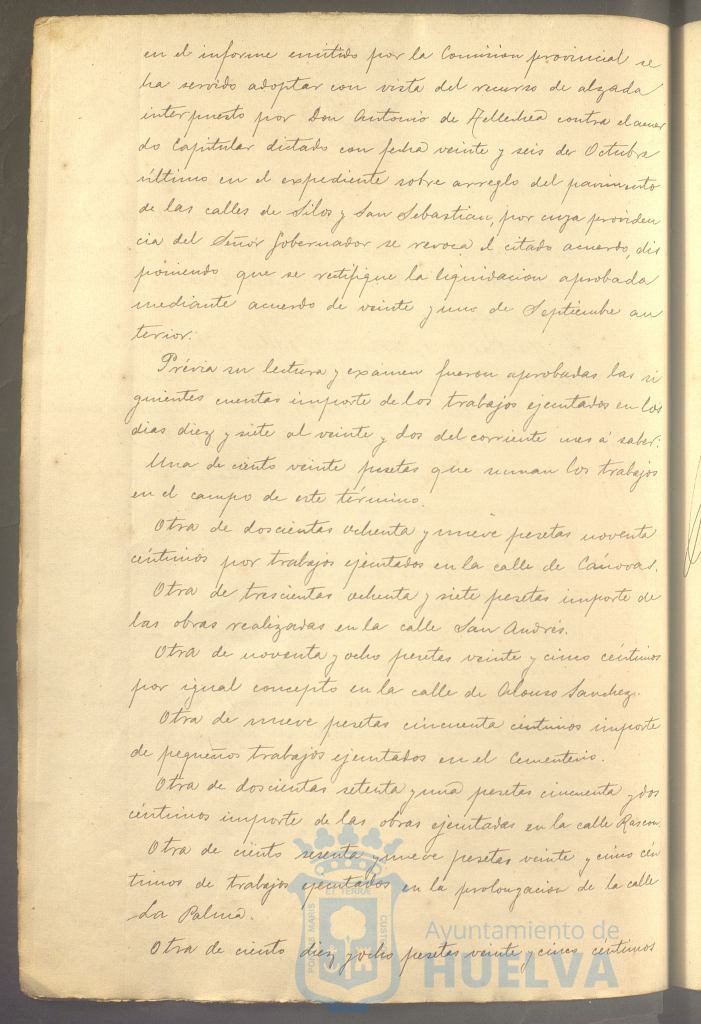 en el informe emitido por la Comision provincial se
ha servido adoptar con vista del recurso de alzada
interpuesto por Don Antonio de contra el acuer
do Capitular dictado con fecha veinte y seis de Octubre
último en el expediente sobre arreglo del pavimento
de las calles de Silos y San Sebastian, por cuya providen
cia del Señor Gobernador se revoca el citado acuerdo, dis
poniendo que se rectifique la liquidacion aprobada
mediante acuerdo de veinte y uno de Septiembre an
terior.
Prévia su lectura y exámen fueron aprobadas las si
guientes cuentas importe de los trabajos ejecutados en los
dias diez y siete al veinte y dos del corriente mes á saber:
Una de ciento veinte pesetas que suman los trabajos
en el campo de este término.
Otra de doscientas ochenta y nueve pesetas noventa
céntimos por trabajos ejecutados en la calle de Cánovas.
Otra de trescientas ochenta y siete pesetas importe de
las obras realizadas en la calle San Andrés.
Otra de noventa y ocho pesetas veinte y cinco céntimos
por igual concepto en la calle de Alonso Sanchez.
Otra de nueve pesetas cincuenta céntimos importe
de pequeños trabajos ejecutados en el Cementerio.
Otra de doscientas setenta y una pesetas cincuenta y dos
céntimos importe de las obras ejecutadas en la calle Rascon.
Otra de ciento sesenta y nueve pesetas veinte y cinco cén
timos de trabajos ejecutados en la prolongacion de la calle
La Palma.
Otra de ciento diez y ocho pesetas veinte y cinco céntimos
PORTUS MARIS
ET TERRE
CUSTODIA
Ayuntamiento de
HUELVA